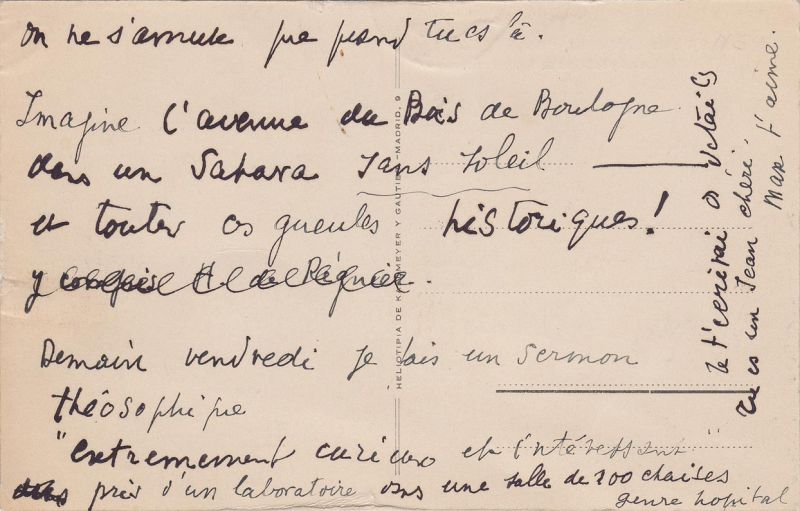 On ne s'amuse que quand tu es là.
Imagine l'avenue du Bois de Boulogne
dans un Sahara sans soleil
et toutes ces gueules historiques!
y compris H. de Régnier.
Demain vendredi je fais un sermon
théosophique
"extremement curieux et intéressant"
près d'un laboratoire dans une salle de 200 chaises
genre hopital
Je t'ecrirai ces détails
Tu es un Jean chéri
Max t'aime.
HELIOTIPIA DE KALLMEYER Y GAUTIER—MADRID, 9